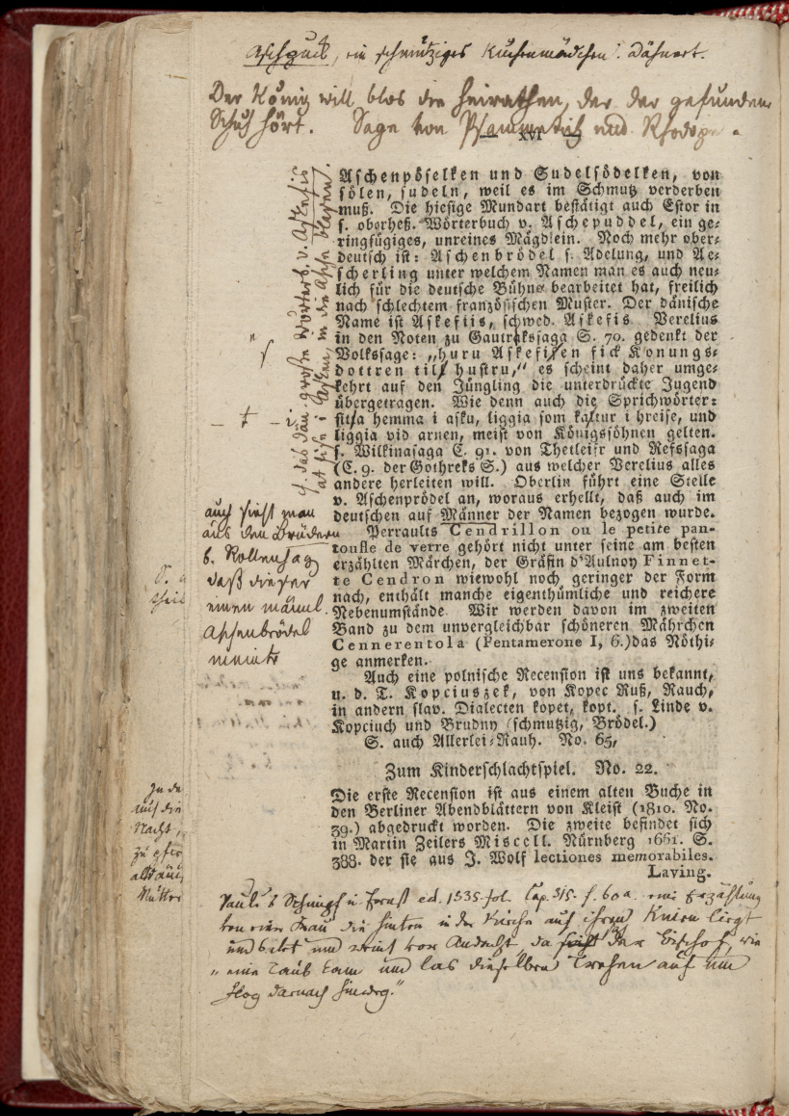 Aschpuck, ein schmutziges Küchenmädchen. Dähnert.
Der König will blos die heirathen, der der gefundene
Schuh hört. Sage von Psammetich und Rhodope.
XVI
Aschenpöselken und Sudelsödelken, von
sölen, sudeln, weil es im Schmutz verderben
muß. Die hiesige Mundart bestätigt auch Estor in
s. oberheß. Wörterbuch v. Aschepuddel, ein ge-
ringfügiges, unreines Mägdlein. Noch mehr ober-
deutsch ist: Aschenbrödel s. Adelung, und Ae-
scherling unter welchem Namen man es auch neu-
lich für die deutsche Bühne bearbeitet hat, freilich
nach schlechtem französischen Muster. Der dänische
Name ist Askefiis, schwed. Askefis. Verelius
in den Noten zu Gautrekssaga S. 70. gedenkt der
Volkssage: „huru Askefisen fick Konungs-
dottren till hustru,“ es scheint daher umge-
kehrt auf den Jüngling die unterdrückte Jugend
übergetragen. Wie denn auch die Sprichwörter:
sitia hemma i asku, liggia som kattur i hreise, und
liggia vid arnen, meist von Königssöhnen gelten.
s. Wilkinasaga C. 91. von Thetleifr und Refssaga
(C. 9. der Gothreks S.) aus welcher Verelius alles
andere herleiten will. Oberlin führt eine Stelle
v. Aschenprödel an, woraus erhellt, daß auch im
deutschen auf Männer der Namen bezogen wurde.
Perraults Cendrillon ou le petite pan-
toufle de verre gehört nicht unter seine am besten
erzählten Märchen, der Gräfin d'Aulnoy Finnet-
te Cendron wiewohl noch geringer der Form
nach, enthält manche eigenthümliche und reichere
Nebenumstände. Wir werden davon im zweiten
Band zu dem unvergleichbar schöneren Mährchen
Cennerentola (Pentamerone I, 6.)das Nöthi-
ge anmerken.
Auch eine polnische Recension ist uns bekannt,
u. d. T. Kopciuszek, von Kopec Ruß, Rauch,
in andern slav. Dialecten kopet, kopt. s. Linde v.
Kopciuch und Brudny (schmutzig, Brödel.)
S. auch Allerlei-Rauh. No. 65,
Zum Kinderschlachtspiel. No. 22.
Die erste Recension ist aus einem alten Buche in
den Berliner Abendblättern von Kleist (1810. No.
39.) abgedruckt worden. Die zweite befindet sich
in Martin Zeilers Miscell. Nürnberg 1661. S.
388. der sie aus J. Wolf lectiones memorabiles.
Laving.
s. das dän. große Wörterb. v. Askefis
at sise i Asken, in die Asche blasen.
auch sieht man
aus den Brüdern
b. Rollenhag
daß dieser
einen männl.
Aschenbrödel
meinte
Nacht,
Mutter
Pauli's Schimpf u. Ernst ed. 1535. fol. Cap. 315. f. 60a. eine Erzählung
von einer Frau die hinten in der Kirche auf ihren Knien liegt
und betet und weint vor Andacht, da sieht der Bischof, wie
„eine Taub kam und las dieselben Trehen auf und
flog darnach hinweg.“